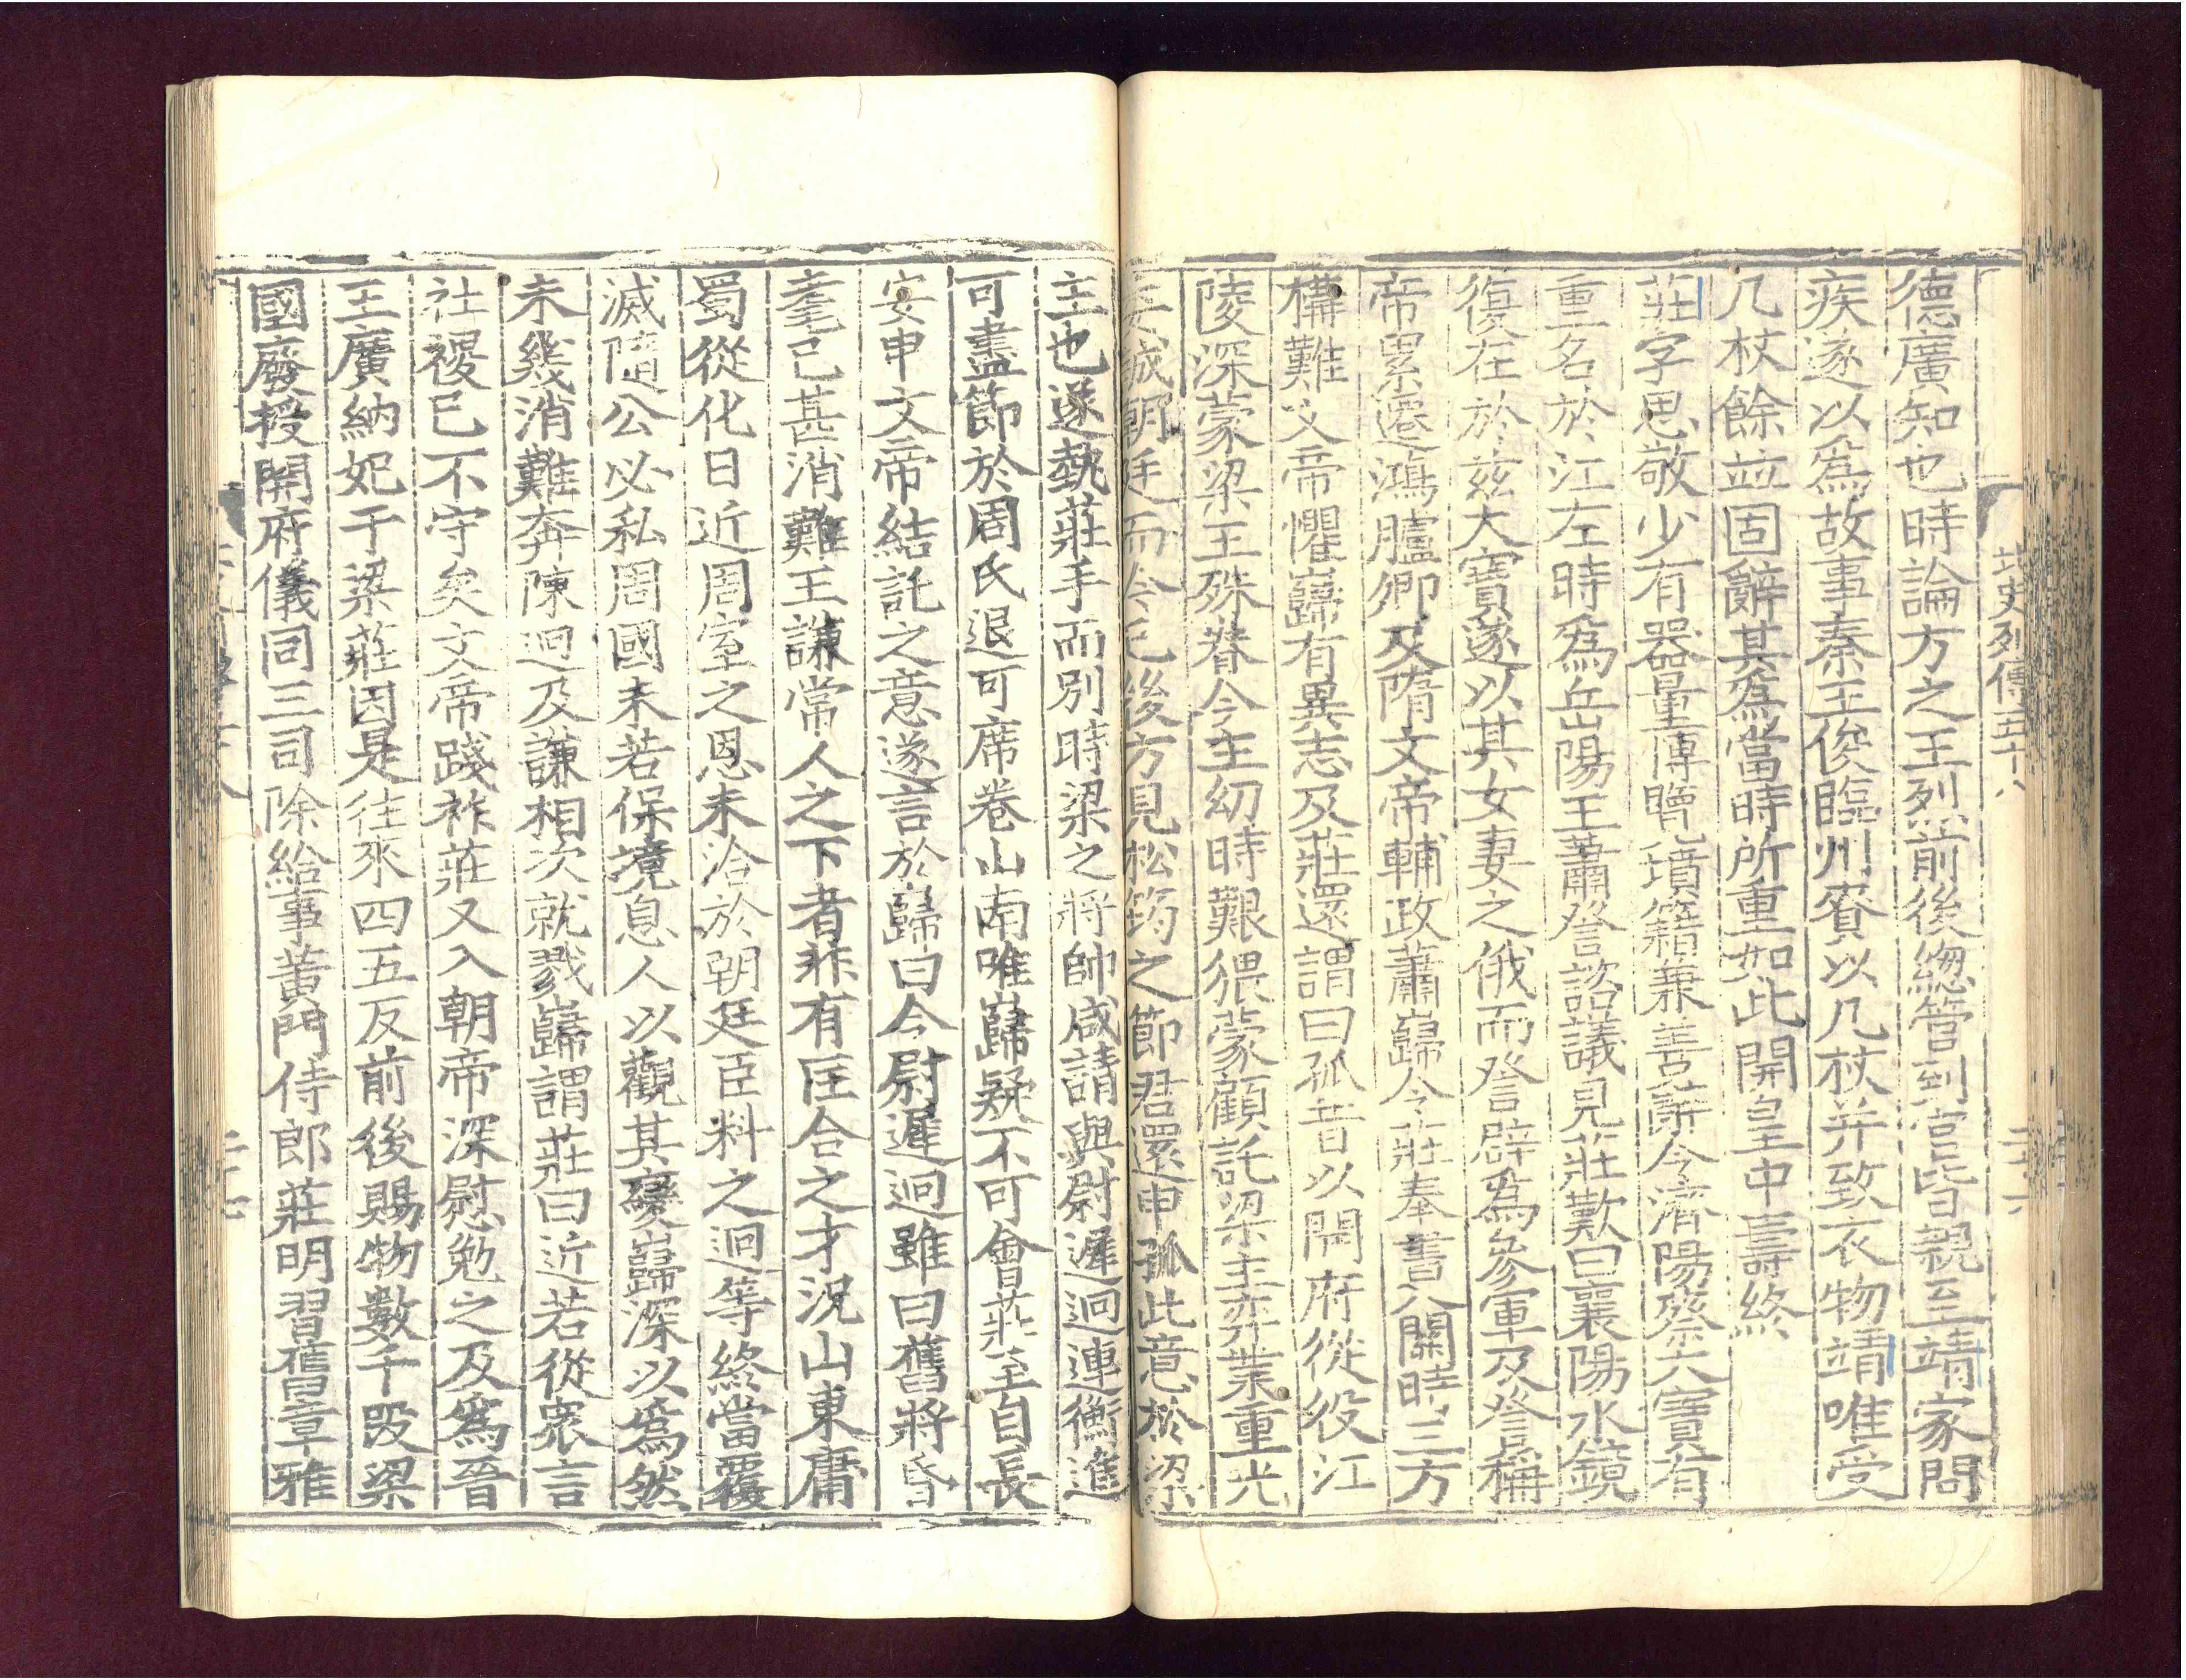 北史列傳五十八
德廣知也時論方之王烈前後緫管到官皆親至靖家問
疾遂以爲故事秦王俊臨州賚以几杖并致衣物靖唯受
几杖餘並固辭其爲當時所重如此開皇中壽終
莊字思敬少有器量博覽墳籍兼善辭令濟陽蔡大寶有
重名於江左時爲岳陽王蕭詧諮議見莊歎曰襄陽水鏡
復在於兹大寶遂以其女妻之俄而詧辟爲參軍及詧稱
帝累遷鴻臚卿及隋文帝輔政蕭巋令莊奉書入關時三方
構難文帝懼巋有異志及莊還謂曰孤昔以開府從役江
陵深蒙梁王殊眷今主幼時艱猥蒙顧託梁主弈葉重光
委誠朝廷而今已後方見松筠之節君還申孤此意於梁
主也遂執莊手而別時梁之將帥咸請與尉遲迥連衡進
可盡節於周氏退可席卷山南唯巋疑不可會莊至自長
安申文帝結託之意遂言於巋曰今尉遲迥雖曰舊將昏
耄已甚消難王謙常人之下者非有匡合之才況山東庸
蜀從化日近周室之恩未洽於朝廷臣料之迥等終當覆
滅隨公必私周國未若保境息人以觀其變巋深以爲然
未幾消難奔陳迥及謙相次就戮巋謂莊曰近若從衆言
社稷已不守矣文帝踐祚莊又入朝帝深慰勉之及爲晉
王廣納妃于梁莊因是往來四五反前後賜物數千段梁
國廢授開府儀同三司除給事黃門侍郎莊明習舊章雅